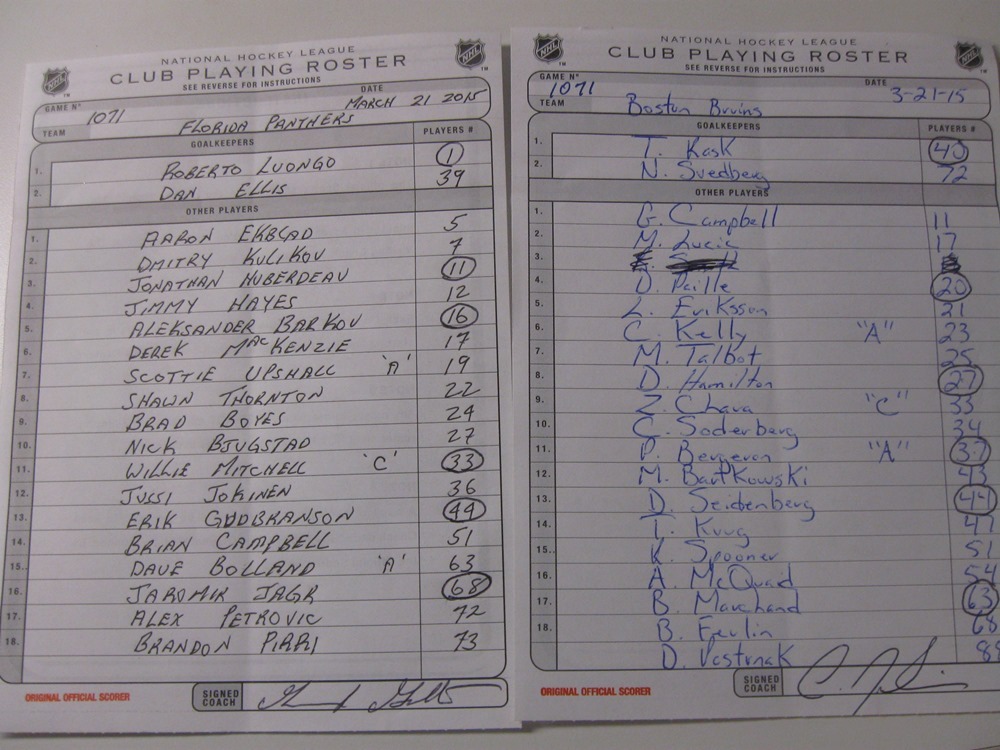 NATIONAL HOCKEY LEAGUE
CLUB PLAYING ROSTER
SEE REVERSE FOR INSTRUCTIONS
GAME Nº 1071 DATE MARCH 21 2015
TEAM FLORIDA PANTHERS
GOALKEEPERS PLAYERS #
1. ROBERTO LUONGO 1
2. DAN ELLIS 39
OTHER PLAYERS
1. AARON EKBLAD 5
2. DMITRY KULIKOV 7
3. JONATHAN HUBERDEAU 11
4. JIMMY HAYES 12
5. ALEKSANDER BARKOV 16
6. DEREK MACKENZIE 17
7. SCOTTIE UPSHALL 'A' 19
8. SHAWN THORNTON 22
9. BRAD BOYES 24
10. NICK BJUGSTAD 27
11. WILLIE MITCHELL 'C' 33
12. JUSSI JOKINEN 36
13. ERIK GUDBRANSON 44
14. BRIAN CAMPBELL 51
15. DAVE BOLLAND 'A' 63
16. JAROMIR JAGR 68
17. ALEX PETROVIC 72
18. BRANDON PIRRI 73
ORIGINAL OFFICIAL SCORER
SIGNED COACH
NHL
NATIONAL HOCKEY LEAGUE
CLUB PLAYING ROSTER
SEE REVERSE FOR INSTRUCTIONS
GAME Nº 1071 DATE 3-21-15
TEAM Boston Bruins
GOALKEEPERS PLAYERS #
1. T. Rask 40
2. N. Svedberg 72
OTHER PLAYERS
1. G. Campbell 11
2. M. Lucic 17
3.
4. D. Paille 20
5. L. Eriksson 21
6. C. Kelly "A" 23
7. M. Talbot 25
8. D. Hamilton 27
9. Z. Chara "C" 33
10. C. Soderberg 34
11. P. Bergeron "A" 37
12. M. Bartkowski 43
13. D. Seidenberg 44
14. T. Krug 47
15. R. Spooner 51
16. A. McQuaid 54
17. B. Marchand 63
18. B. Ferlin 68
D. Pastrnak
ORIGINAL OFFICIAL SCORER
SIGNED COACH